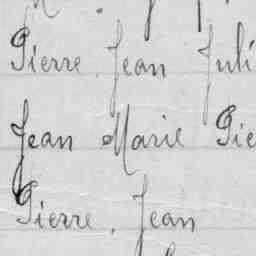 Pierre, Jean Juli
Jean Marie Pie
Pierre, Jean